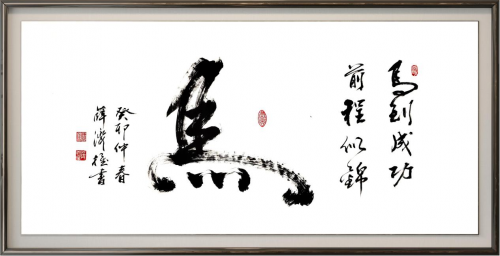 馬到成功
前程似錦
馬
癸卯仲春
薛濟極書